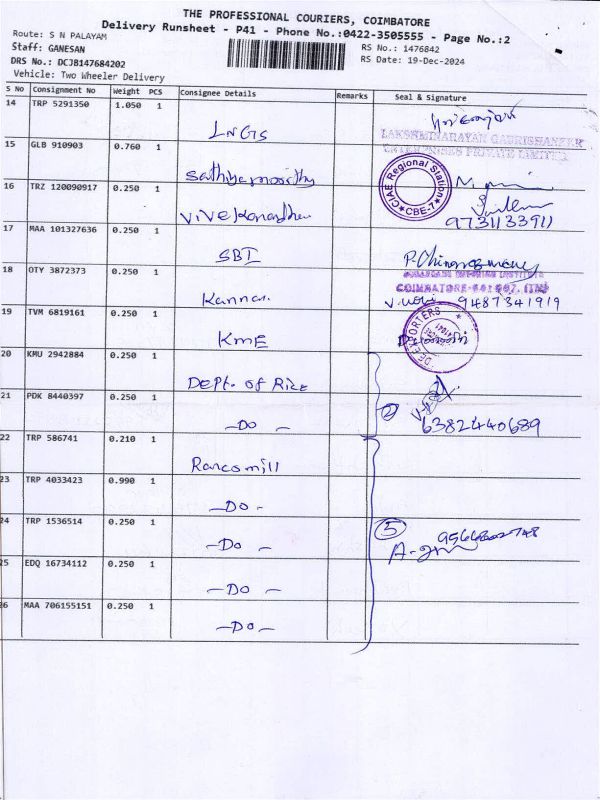 THE PROFESSIONAL COURIERS, COIMBATORE
Delivery Runsheet - P41 - Phone No.:0422-3505555 - Page No.:2
Route: S N PALAYAM
Staff: GANESAN
RS No.: 1476842
DRS No.: DCJB147684202
RS Date: 19-Dec-2024
Vehicle: Two Wheeler Delivery
S No Consignment No Weight PCS Consignee Details Remarks Seal & Signature
14 TRP 5291350 1.050 1 LNGS
LAKSHMINARAYAN GAURISHANKER
ENTERPRISES PRIVATE LIMITED
15 GLB 910903 0.760 1 Sathiyamoorthy
CIAE Regional Station
CBE-7
16 TRZ 120090917 0.250 1 Vivekanandhan
9731133911
17 MAA 101327636 0.250 1 SBI
18 OTY 3872373 0.250 1 Kannan
COIMBATORE-641007
9487341919
19 TVM 6819161 0.250 1 KmE
EXPORTERS
20 KMU 2942884 0.250 1 Dept. of Rice
21 PDK 8440397 0.250 1 -Do-
2
6382440689
22 TRP 586741 0.210 1 Rancomill
23 TRP 4033423 0.990 1 -Do-
24 TRP 1536514 0.250 1 -Do-
5
25 EDQ 16734112 0.250 1 -Do-
26 MAA 706155151 0.250 1 -Do-